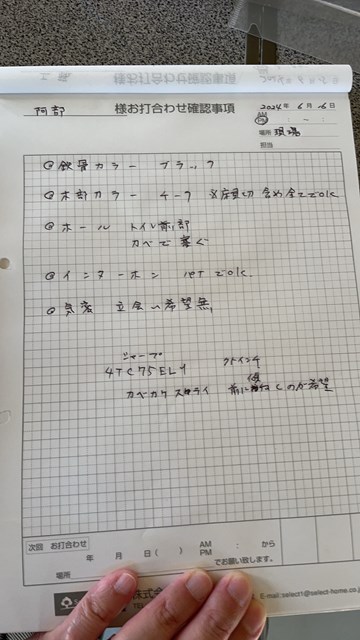 阿部 様お打合わせ確認事項 2024年 6月 16日
場所 現場
担当
◎鉄骨カラー ブラック
◎木部カラー チーク ※床見切 含め全てでok
◎ホール トイレ前部
カベで塞ぐ
◎インターホン 1セTでok.
◎気密 立会い希望無
シャープ
4TC75EL1 クトインチ
カベカケ 前に 優 のが希望
次回 お打合わせ
年 月 日( ) AM PM : から
でお願い致します。
場所
株式会
E-mail:select1@select-home.co.j